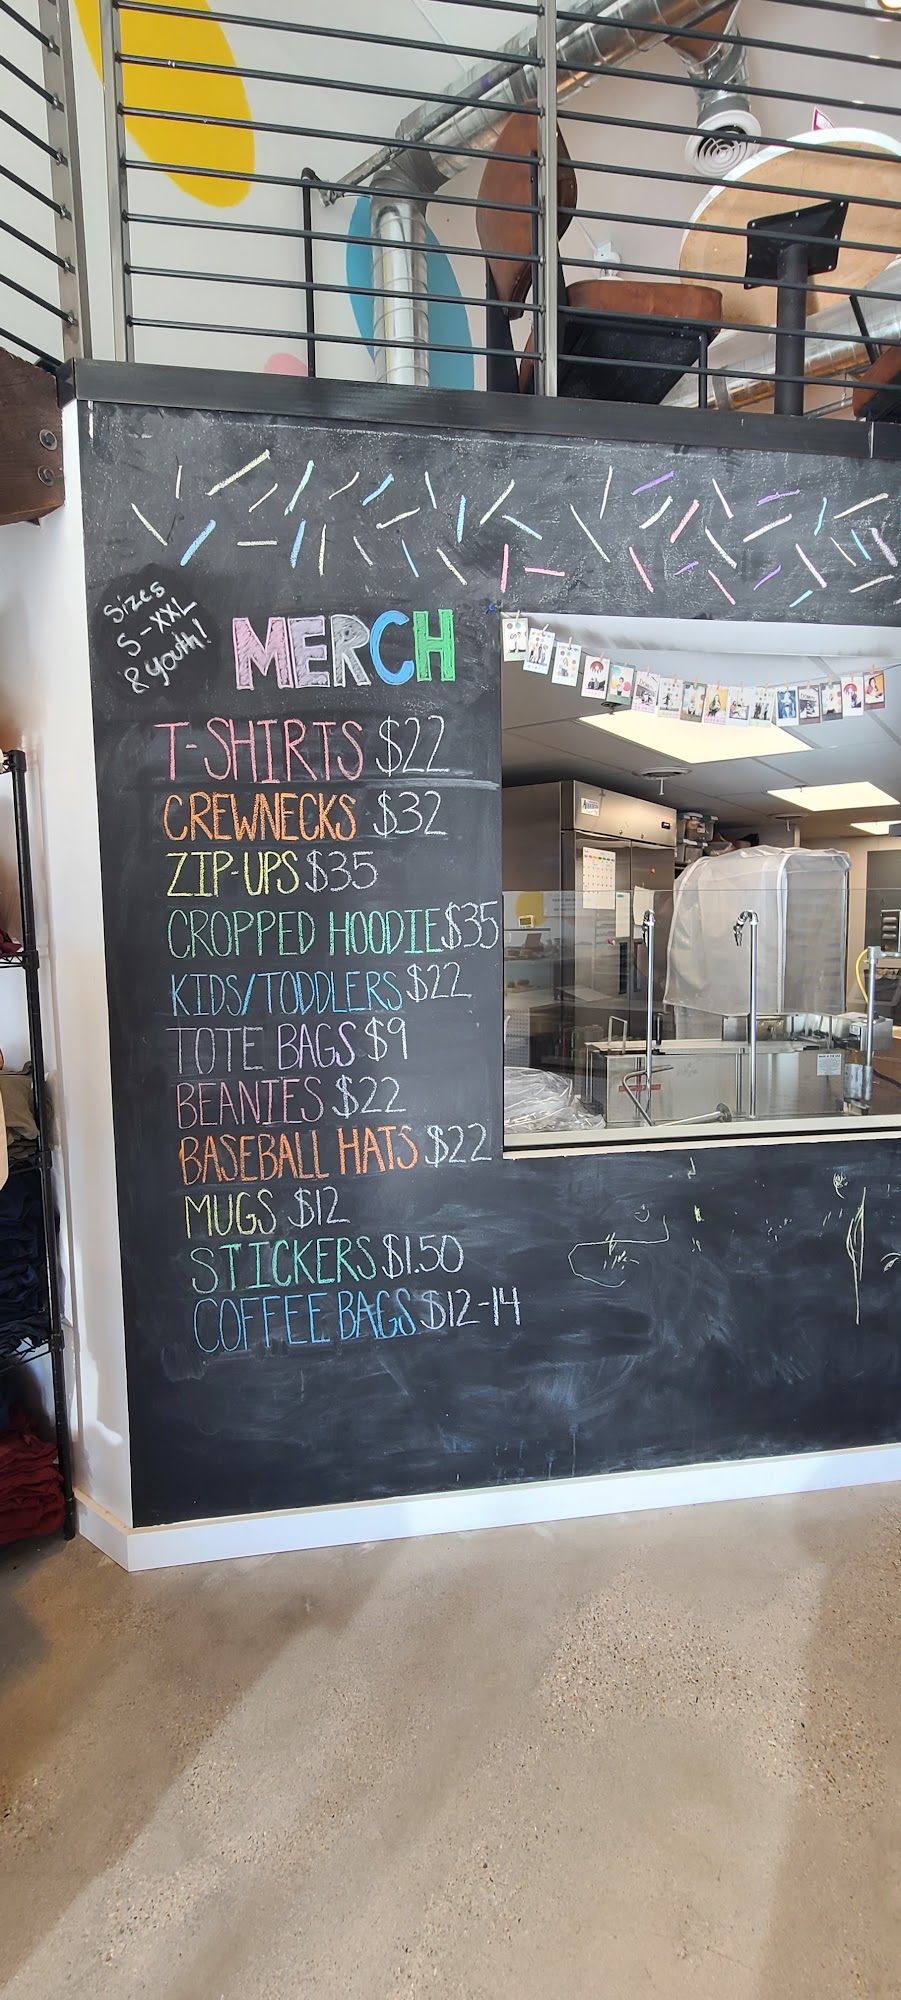 Sizes
S-XXL
& youth!
MERCH
T-SHIRTS $22
CREWNECKS $32
ZIP-UPS $35
CROPPED HOODIE $35
KIDS/TODDLERS $22
TOTE BAGS $9
BEANIES $22
BASEBALL HATS $22
MUGS $12
STICKERS $1.50
COFFEE BAGS $12-14